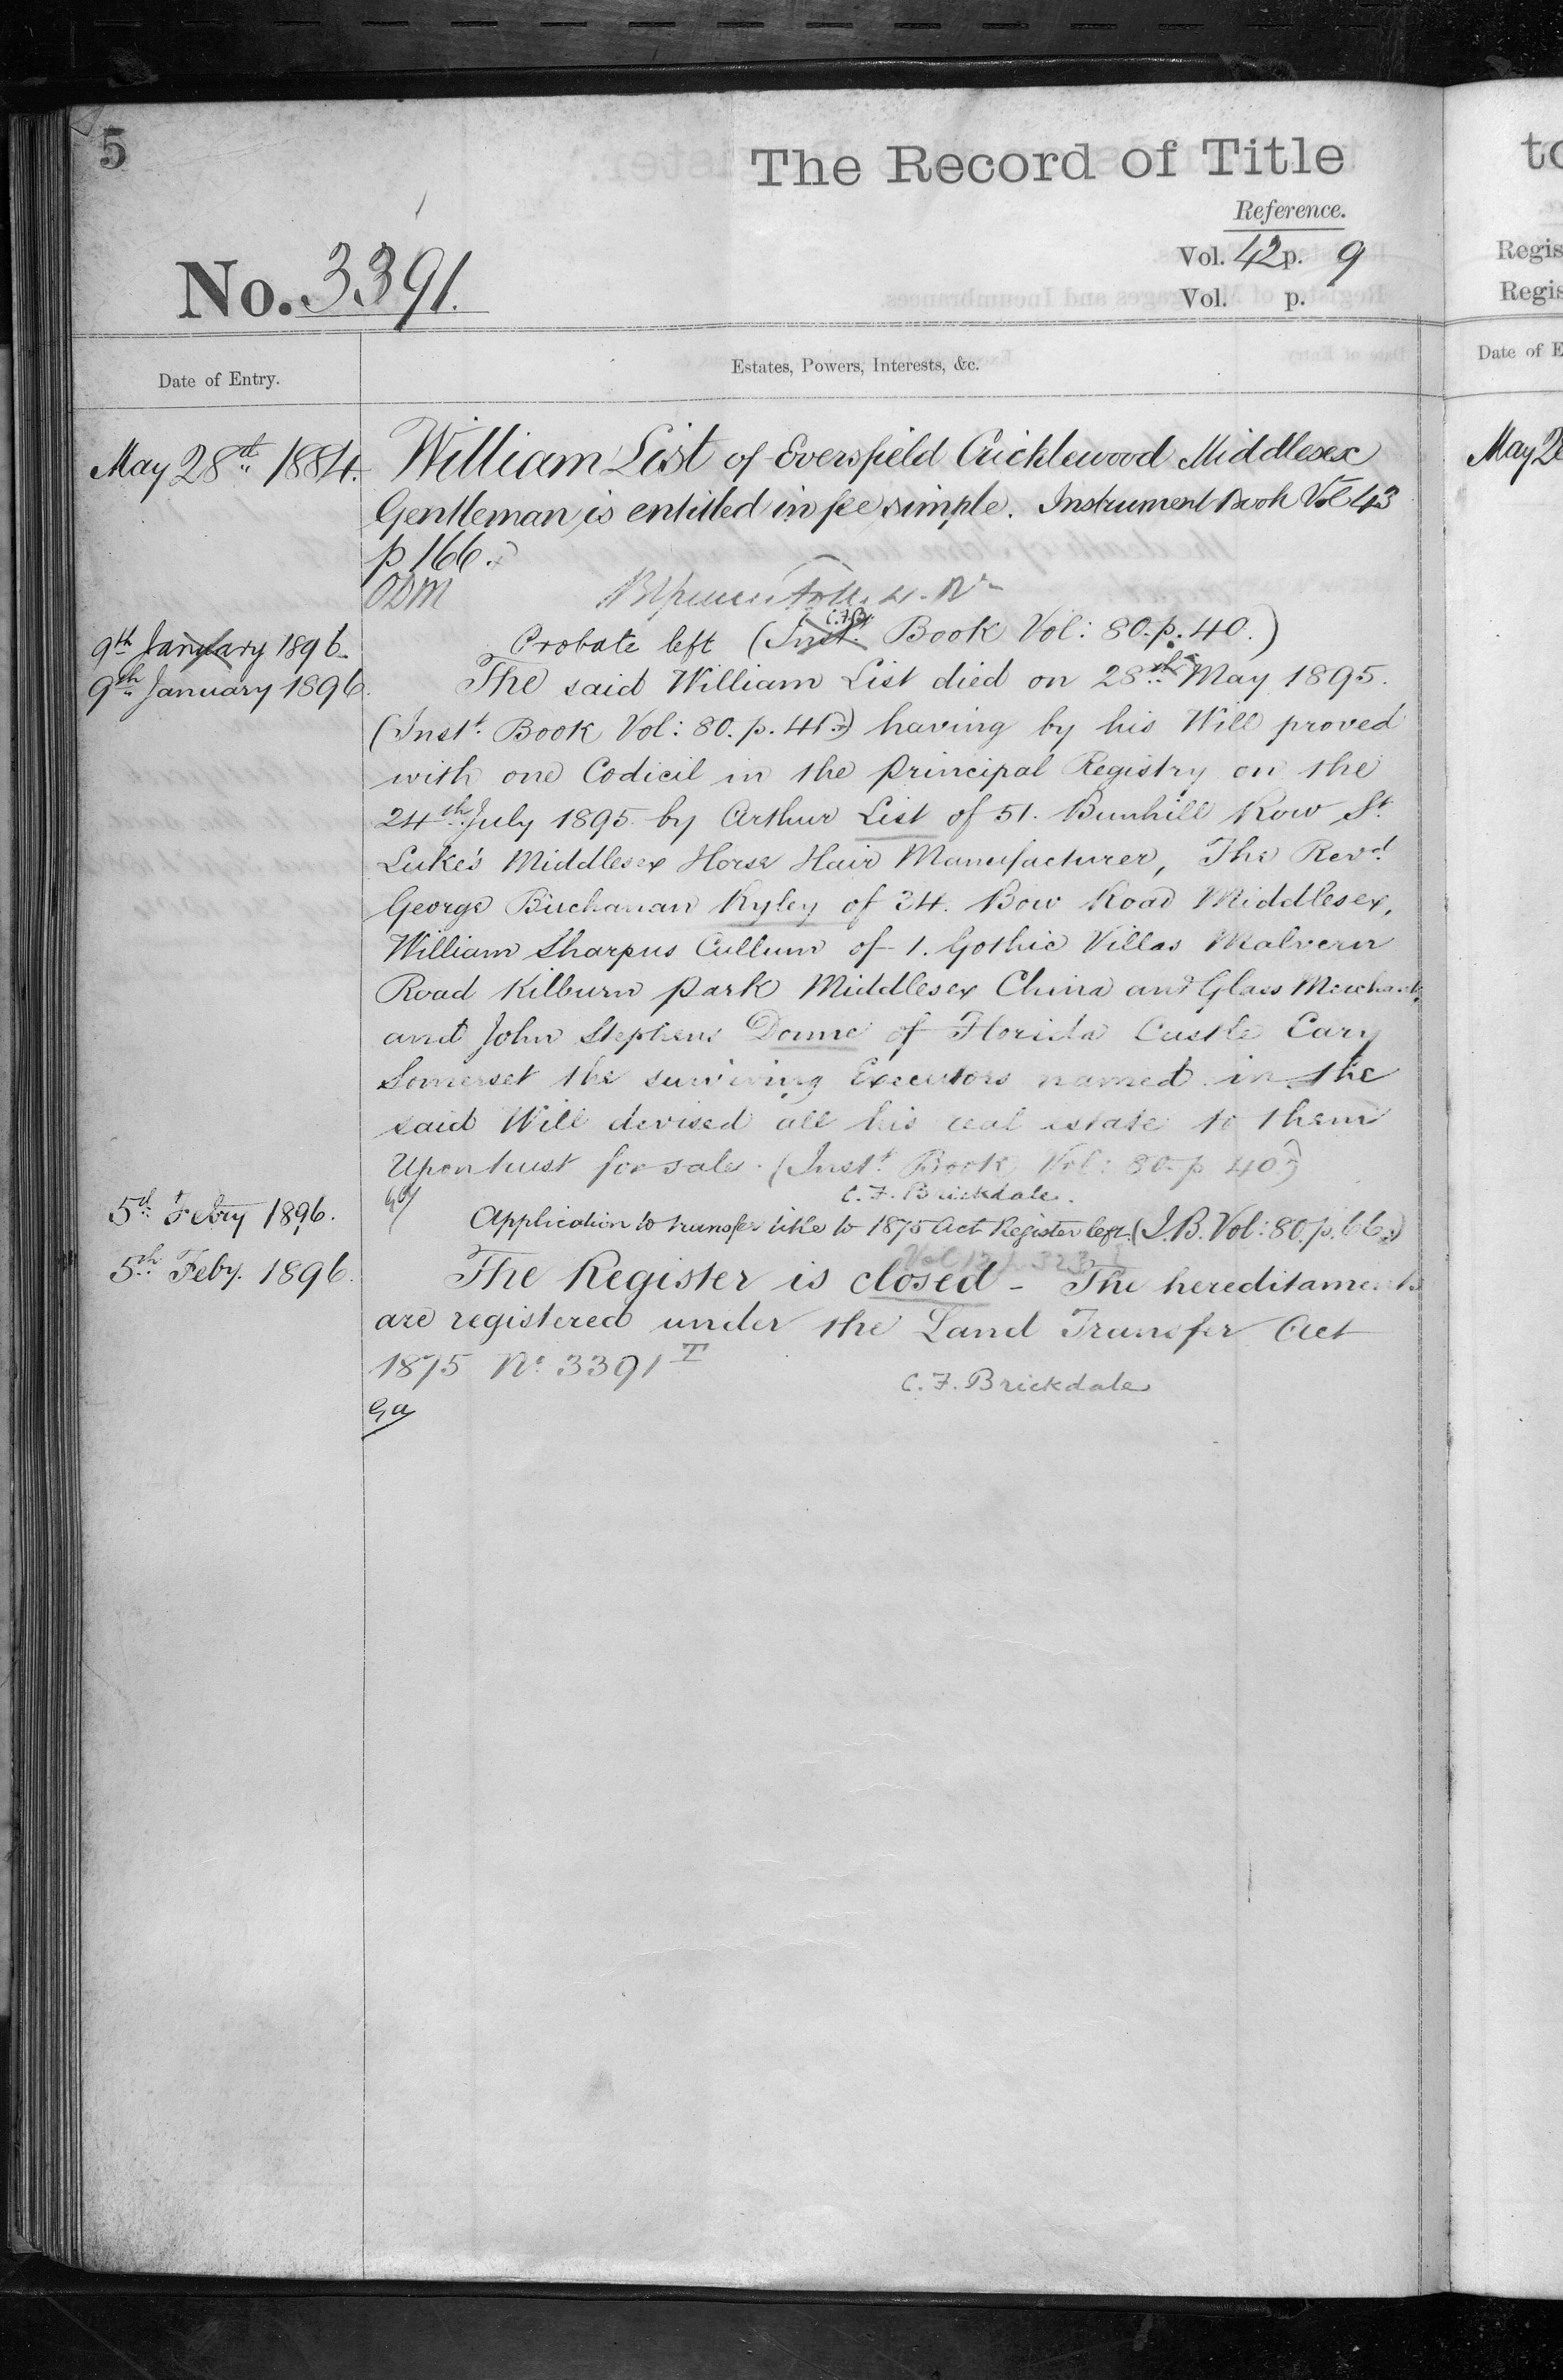 5
The Record of Title
Reference.
No. 3391.
Vol. 42 p. 9
Vol. p.
Date of Entry.
Estates, Powers, Interests, &c.
May 28th 1884. William List of Eversfield Cricklewood Middlesex
Gentleman is entitled in fee simple. Instrument Book Vol 43
p 166.
ODM
C.F.B.
9th January 1896. Probate left (Inst. Book Vol: 80. p. 40.)
9th January 1896. The said William List died on 28th May 1895.
(Inst. Book Vol: 80. p. 41.) having by his Will proved
with one Codicil in the Principal Registry on the
24th July 1895 by Arthur List of 51. Bunhill Row St.
Luke's Middlesex Horse Hair Manufacturer, The Revd.
George Buchanan Ryley of 34. Bow Road Middlesex,
William Sharpus Cullum of 1. Gothic Villas Malvern
Road Kilburn Park Middlesex China and Glass Merchant
and John Stephens Donne of Florida Castle Cary
Somerset the surviving Executors named in the
said Will devised all his real estate to them
Upon trust for sale. (Inst. Book Vol: 80. p 40.)
C. F. Brickdale.
5th Febry 1896. Application to transfer title to 1875 Act Register left. (I.B. Vol: 80. p. 66.)
5th Feby. 1896. The Register is closed - The hereditaments
are registered under the Land Transfer Act
1875 No. 3391 T
C. F. Brickdale
to
Regis
Regis
Date of E
May 2